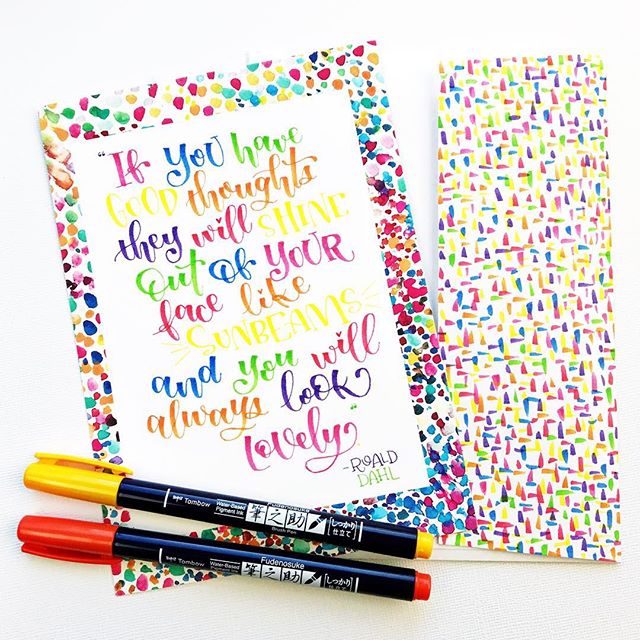 "If you have
GOOD thoughts
they will SHINE
Out of YOUR
face like
SUNBEAMS
and you will
always look
lovely."
-ROALD
DAHL
Tombow
Water-Based
Pigment Ink
筆之助
Brush Pen
しっかり
仕立て
Tombow
Water-Based
Pigment Ink
Fudenosuke
筆之助
しっかり
仕立て